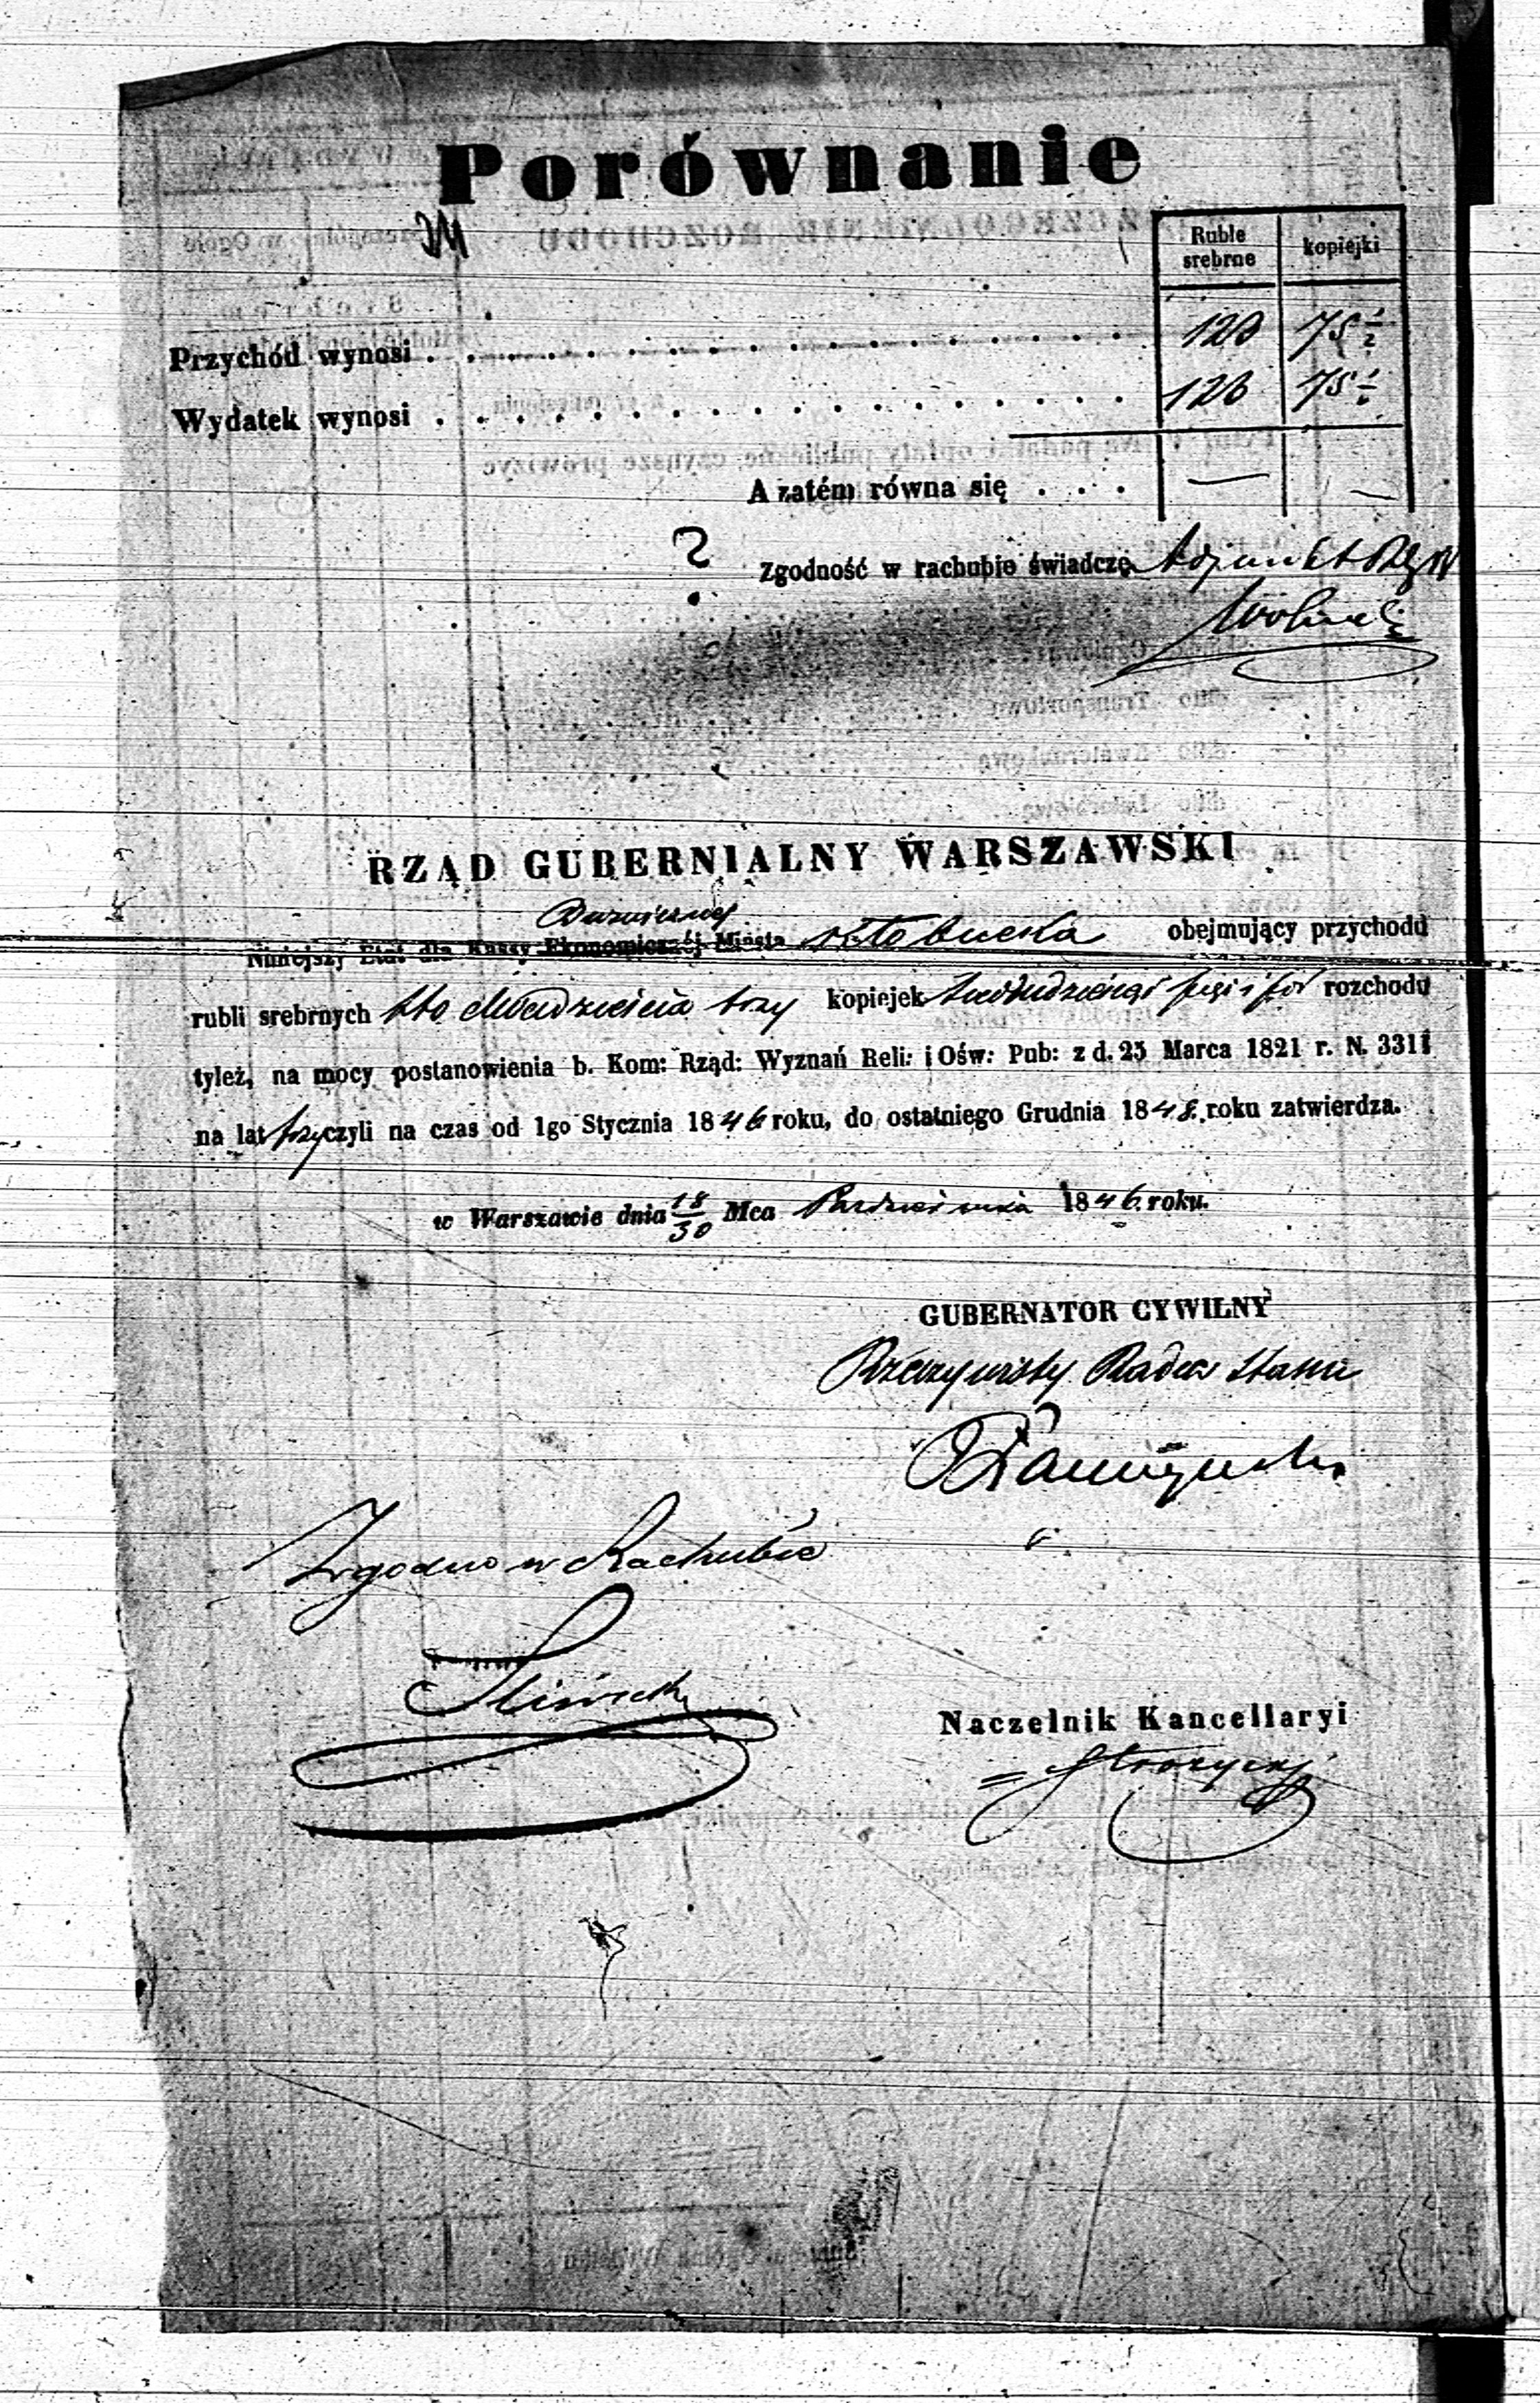 Porównanie
Ruble srebrne kopiejki
Przychód wynosi . . . . . . 123 75 1/2
Wydatek wynosi . . . . . . 123 75 1/2
A zatém równa się . . . — —
Zgodność w rachubie świadczę
RZĄD GUBERNIALNY WARSZAWSKI
Bużniczej
Niniejszy Etat dla Kassy Ekonomicznéj Miasta obejmujący przychodu
rubli srebrnych sto dwadzieścia trzy kopiejek siedmdziesiąt pięć i pół rozchodu
tyleż, na mocy postanowienia b. Kom: Rząd: Wyznań Reli: i Ośw: Pub: z d. 25 Marca 1821 r. N. 3311
na lat trzy czyli na czas od 1go Stycznia 1846 roku, do ostatniego Grudnia 1848 roku zatwierdza.
w Warszawie dnia 18/30 Mca Października 1846 roku.
GUBERNATOR CYWILNY
Rzeczywisty Radca Stanu
Zgodno w Rachubie
Naczelnik Kancellaryi